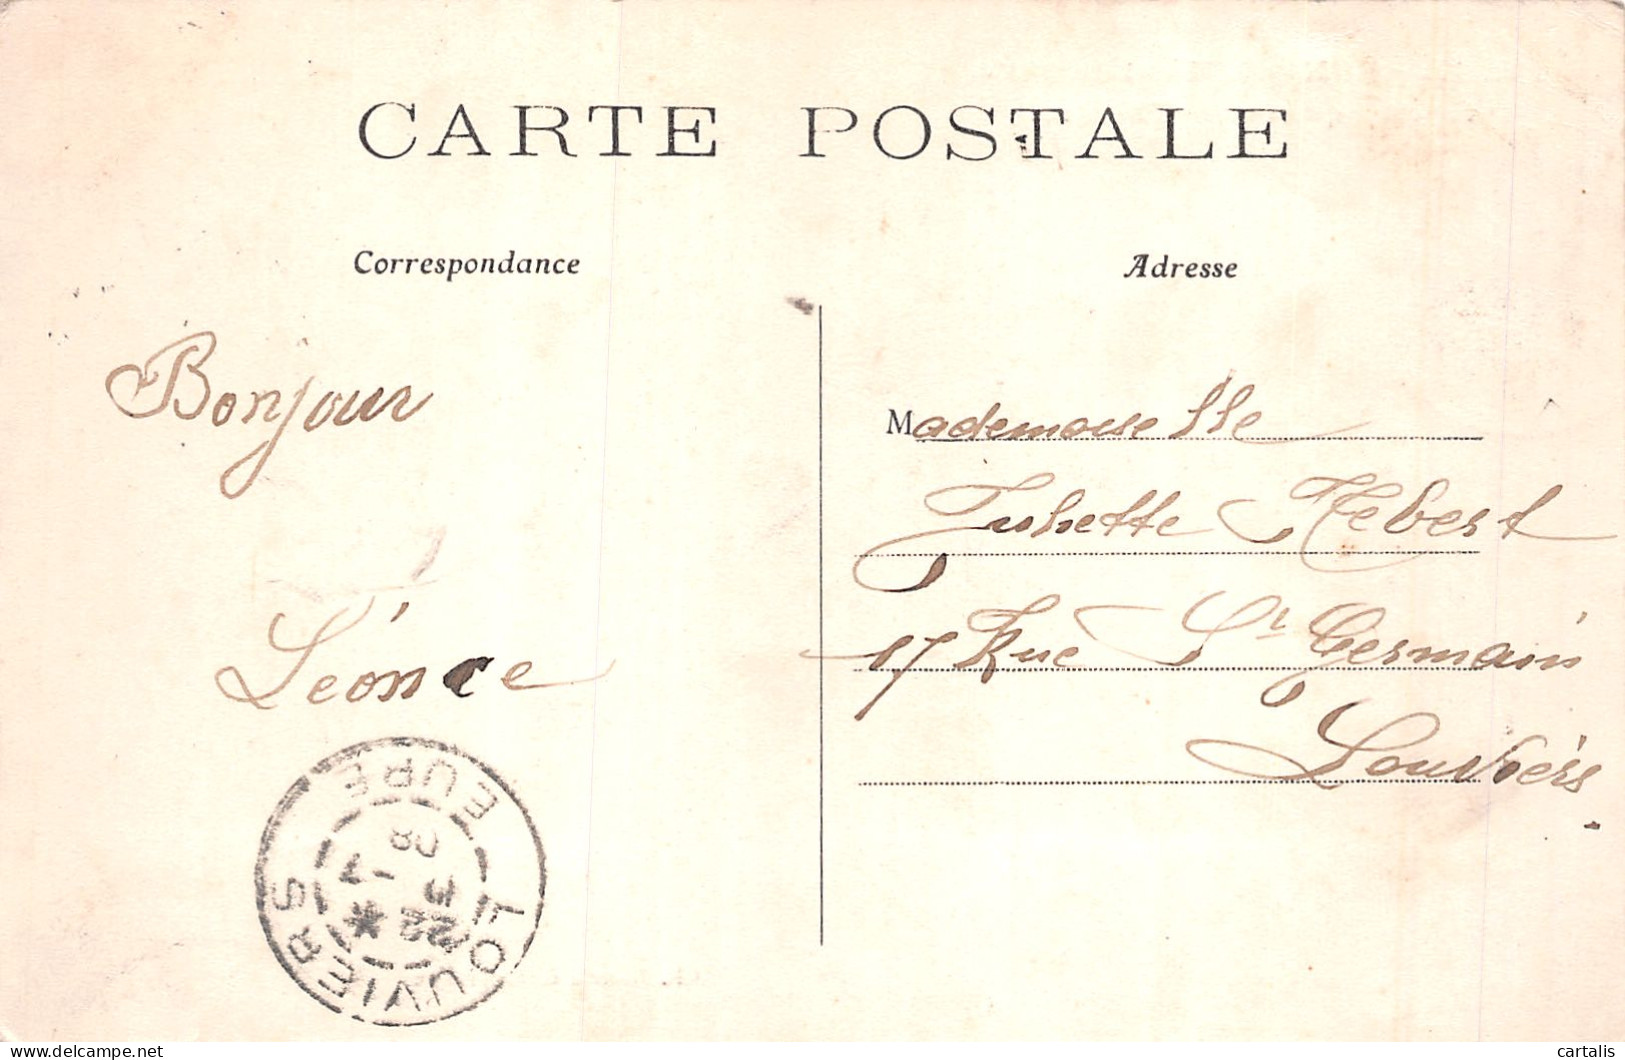 CARTE POSTALE
Correspondance
Adresse
Bonjour
Léonce
Mademoiselle
Juliette Hebert
17 Rue St Germain
Louviers
LOUVIERS
EURE
22 *
3 -7
08
www.delcampe.net
cartalis